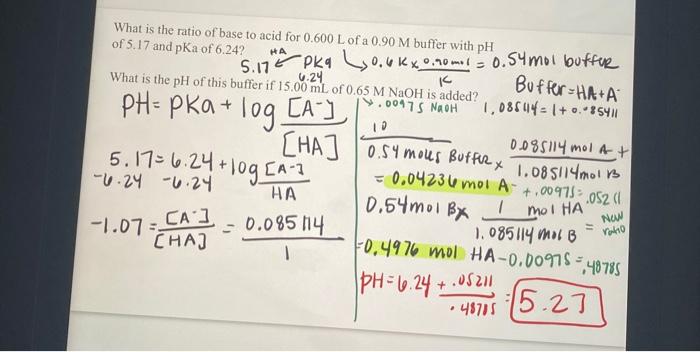 What is the ratio of base to acid for 0.600 L of a 0.90 M buffer with pH
of 5.17 and pKa of 6.24?
HA
5.17 PKa
6.24
0.6 L x 0.90 mol = 0.54 mol buffer
L
What is the pH of this buffer if 15.00 mL of 0.65 M NaOH is added?
.00975 NaOH
Buffer = HA + A-
1.08514 = 1 + 0.085114
PH = PKa + log [A-]
[HA]
5.17 = 6.24 + log [A-]
HA
-6.24 -6.24
-1.07 = [A-] = 0.085114
[HA] 1
0.54 moles Buffer x 0.085114 mol A-
1.085114 mol B
= 0.04236 mol A- + .00975 = .05211
0.54 mol B x 1 mol HA
1.085114 mol B
= New ratio
= 0.4976 mol HA - 0.00975 = .48785
pH = 6.24 + .05211 = 5.27
.48785